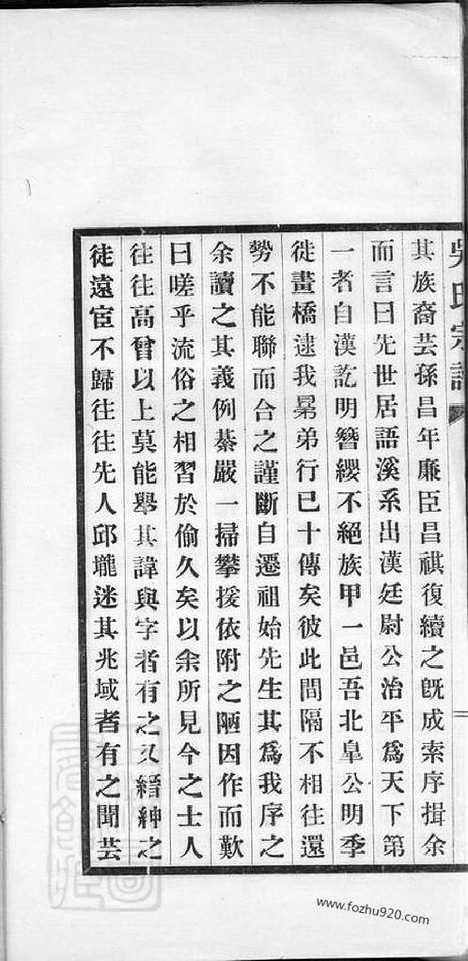 吳氏宗譜
其族裔芸孫昌年廉臣昌祺復續之旣成索序揖余
而言曰先世居語溪系出漢廷尉公治平爲天下第
一者自漢訖明簪纓不絕族甲一邑吾北皐公明季
徙畫橋逮我晜弟行已十傳矣彼此間隔不相往還
勢不能聯而合之謹斷自遷祖始先生其爲我序之
余讀之其義例綦嚴一掃攀援依附之陋因作而歎
曰嗟乎流俗之相習於偷久矣以余所見今之士人
往往高曾以上莫能舉其諱與字者有之又縉紳之
徒遠宦不歸往往先人邱壠迷其兆域者有之聞芸
www.fozhu920.com